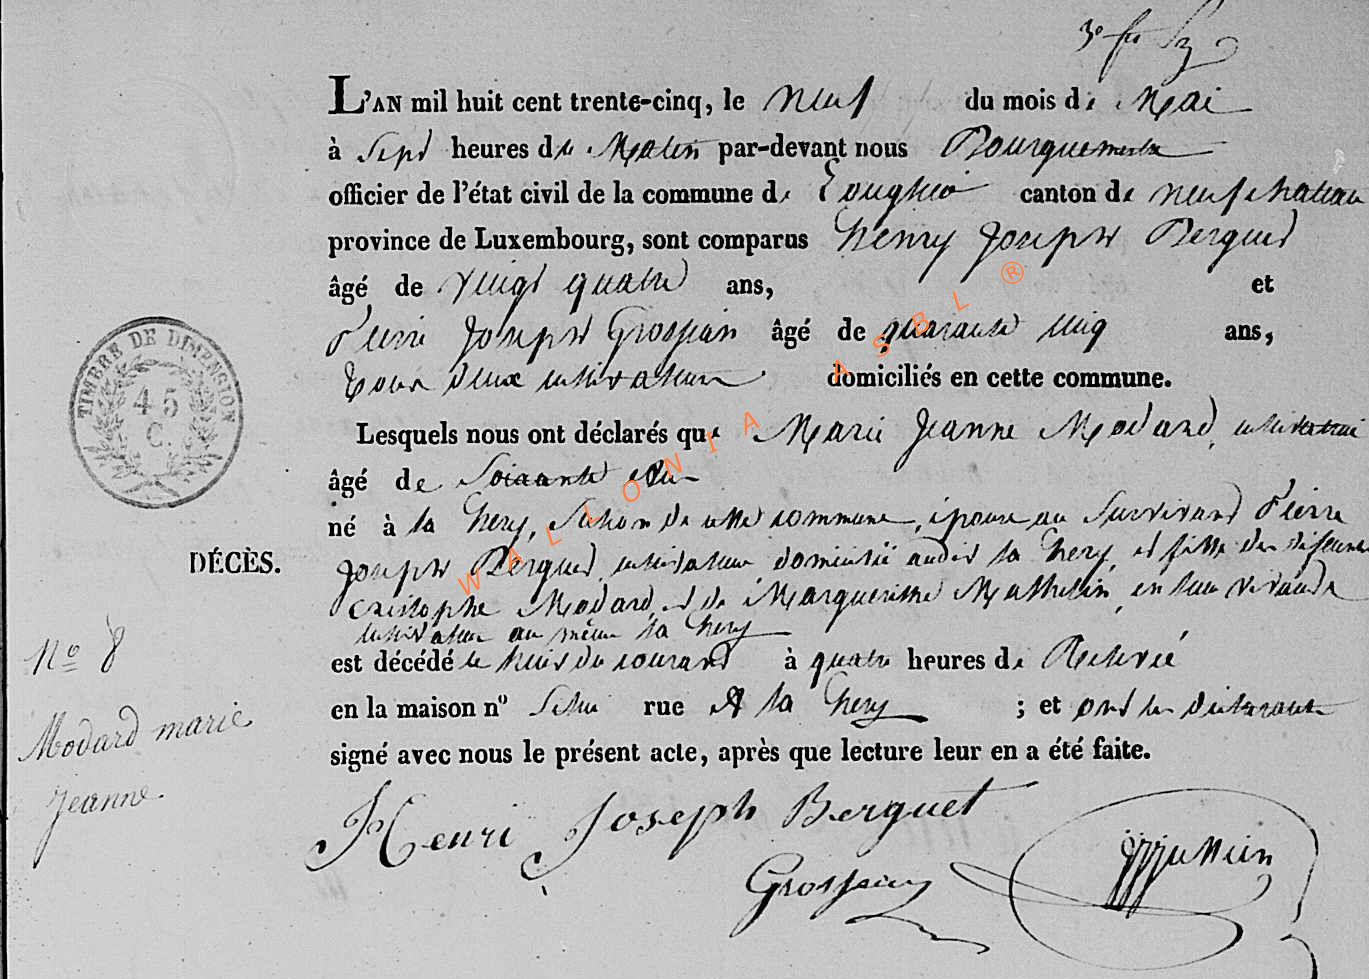 L'AN mil huit cent trente-cinq, le neuf du mois de Mai
à Sept heures du Matin par-devant nous Bourguemestre
officier de l'état civil de la commune de canton de neufchateau
province de Luxembourg, sont comparus henry Joseph Berguet
âgé de vingt quatre ans, et
Pierre Joseph Grosjean âgé de quarante cinq ans,
tous deux cultivateurs domiciliés en cette commune.
Lesquels nous ont déclarés que Marie Jeanne Modard, cultivatrice
âgé de Soixante
né à la hery, Section de cette commune, épouse au Survivant Pierre
Joseph Berguet, cultivateur, domicilié audit la hery, et fille des défunts
Cristophe Modard, et de Margueritte Mathelin, en leur vivant
cultivateur au même la hery
est décédé le huit du courant à quatre heures de Relevée
en la maison nº rue A la hery ; et ont les déclarants
signé avec nous le présent acte, après que lecture leur en a été faite.
TIMBRE DE DIMENSION
45
C.
DÉCÈS.
Nº 8
Modard marie
Jeanne.
Henri Joseph Berguet
Grosjean
WALLONIA ASBL ®